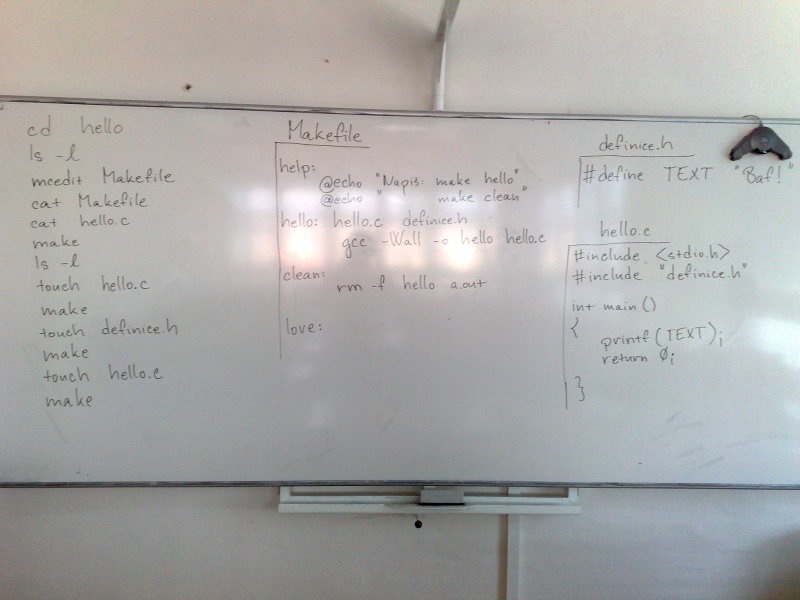 cd hello
ls -l
mcedit Makefile
cat Makefile
cat hello.c
make
ls -l
touch hello.c
make
touch definice.h
make
touch hello.c
make
Makefile
help:
@echo "Napis: make hello"
@echo " make clean"
hello: hello.c definice.h
gcc -Wall -o hello hello.c
clean:
rm -f hello a.out
love:
definice.h
#define TEXT "Baf!"
hello.c
#include <stdio.h>
#include "definice.h"
int main()
{
printf(TEXT);
return 0;
}